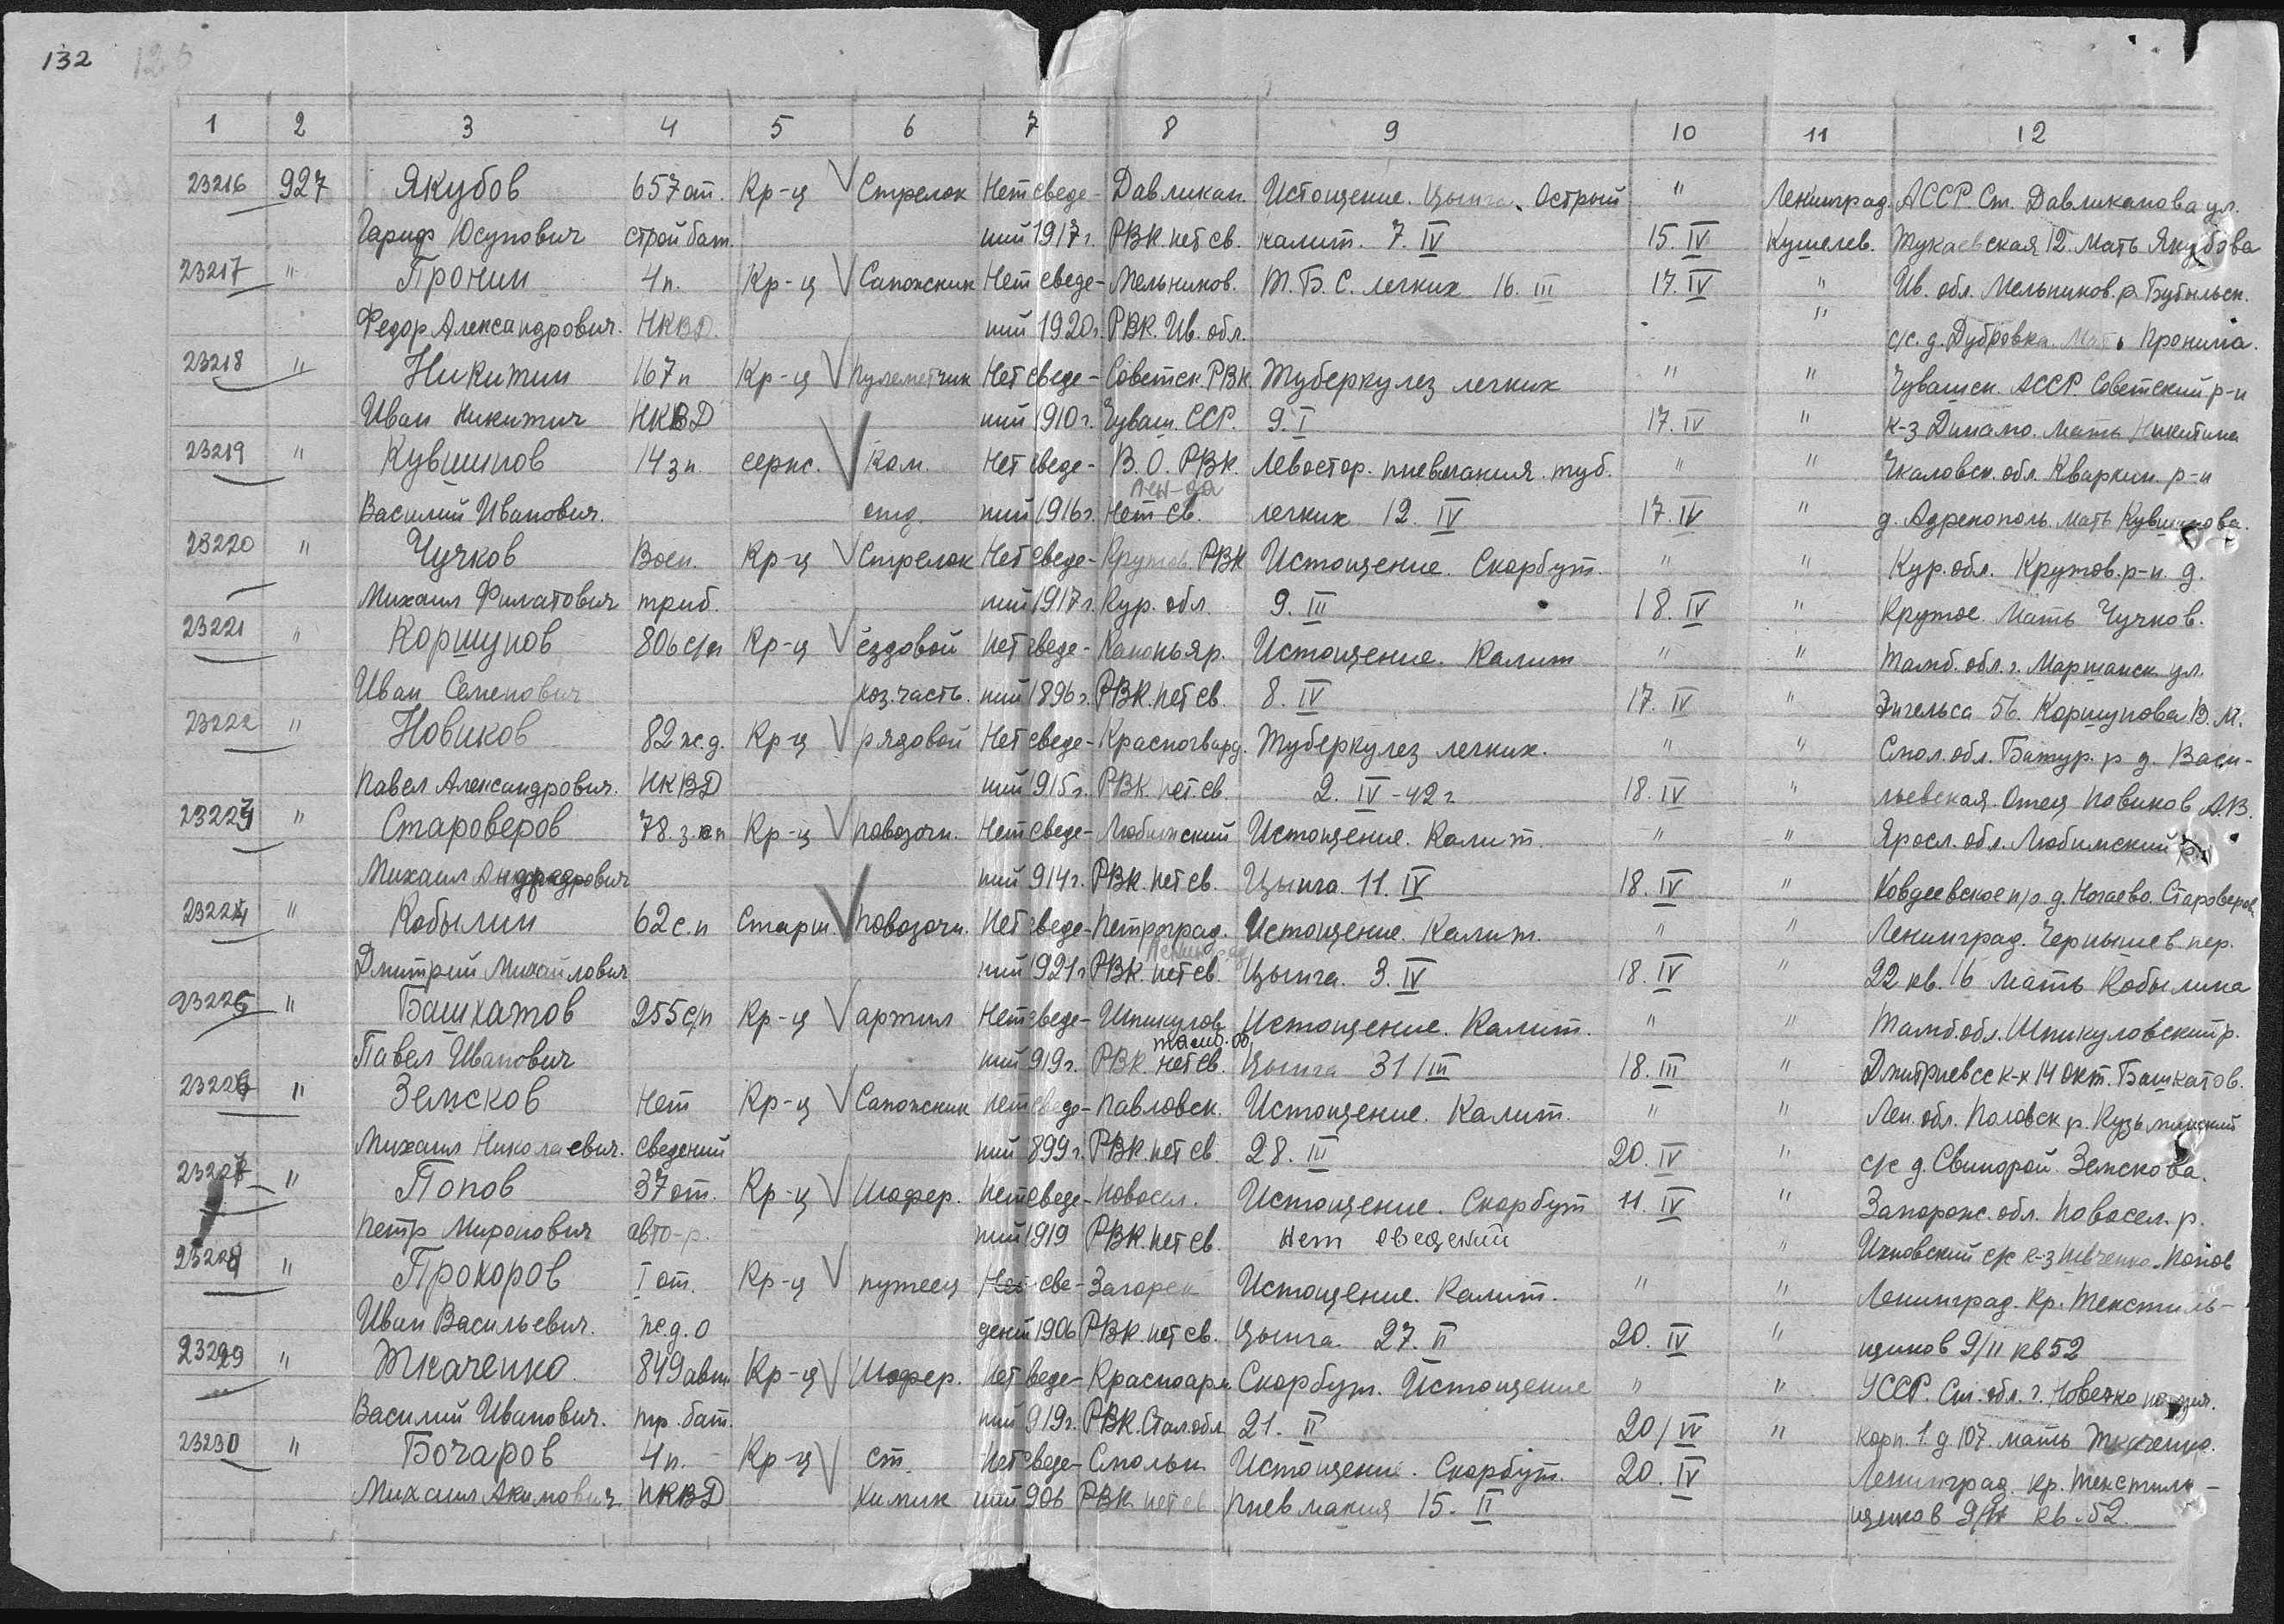 132 125
1 2 3 4 5 6 7 8 9 10 11 12
23216 927 Якубов 657 от. Кр-ц Стрелок Нет сведе- Давликан. Истощение. Цынга. Острый " Ленинград. АССР. Ст. Давликанова ул.
Гариф Юсупович строй бат. ний 1917 г. РВК. нет св. калит. 7. IV 15. IV Кушелев. Тукаевская 12. Мать Якубова
23217 " Пронин 4 п. Кр-ц Сапожник Нет сведе- Мельников. Т. Б. С. легких 16. III 17. IV " Ив. обл. Мельников. р. Бубыльск.
Федор Александрович. НКВД. ний 1920 г. РВК. Ив. обл. " с/с. д. Дубровка. Мать Пронина.
23218 " Никитин 167 п Кр-ц Пулеметчик Нет сведе- Советск. РВК. Туберкулез легких " " Чувашск. АССР. Советский р-н
Иван Никитич НКВД ний 1910 г. Чуваш. ССР. 9. I 17. IV " к-з Динамо. Мать Никитина
23219 " Кувшинов 14 зп. серж. Ком. Нет сведе- В. О. РВК. Левостор. пневмания. туб. " " Чкаловск. обл. Кваркин. р-н
Лен-да
Василий Иванович. отд. ний 1916 г. Нет св. легких 12. IV 17. IV " д. Адренополь. Мать Кувшинова.
23220 " Чучков Воен. Кр-ц Стрелок Нет сведе- Крутов. РВК Истощение. Скорбут. " " Кур. обл. Крутов. р-н. д.
Михаил Филатович триб. ний 1917 г. Кур. обл. 9. III 18. IV " Крутое. Мать Чучков.
23221 " Коршунов 806 с/п Кр-ц ёздовой Нет сведе- Каноньяр. Истощение. Калит " " Тамб. обл. г. Маршанск ул.
Иван Семенович хоз. часть. ний 1896 г. РВК. нет св. 8. IV 17. IV " Энгельса 56. Коршунова В. М.
23222 " Новиков 82 ж. д. Кр-ц рядовой Нет сведе- Красногвард. Туберкулез легких. " " Смол. обл. Батур. р д. Васи-
Павел Александрович. НКВД ний 915 г. РВК. нет св. 2. IV-42 г 18. IV " льевская. Отец Новиков А. В.
23223 " Староверов 78. з сп Кр-ц повозочн. Нет сведе- Любимский Истощение. Калит. " " Яросл. обл. Любимский р-н
Михаил ний 914 г. РВК. нет св. Цынга. 11. IV 18. IV " Ковдеевское п/о. д. Ногаево. Староверов
23224 " Кобылин 62 с. п Старш. повозочн. Нет сведе- Петроград. Истощение. Калит. " " Ленинград. Чернышев пер.
Ленинград
Дмитрий Михайлович ний 921 г РВК. нет св. Цынга. 3. IV 18. IV " 22 кв. 16 мать Кобылина
23225 " Башкатов 255 с/п Кр-ц артил Нет сведе- Шпикулов. Истощение. Калит. " " Тамб. обл. Шпикуловский р.
тамб. об.
Павел Иванович ний 919 г. РВК. нет св. Цынга 31/III 18. III " Дмитриевсс к-х 14 Окт. Башкатов.
23226 " Земсков Нет Кр-ц Сапожник Нет сведе- Павловск. Истощение. Калит. " " Лен. обл. Половск р. Кузьминский
Михаил Николаевич. сведений ний 899 г. РВК. нет св. 28. III 20. IV " с/с д. Свинорой. Земскова.
23227 " Попов 37 от. Кр-ц Шофер. Нет сведе- Новосел. Истощение. Скорбут 11. IV " Запорож. обл. Новосел. р.
Петр Миронович авто-р. ний 1919 РВК. нет св. Нет сведений " с/с к-з Шевченко. Попов
23228 " Прохоров I от. Кр-ц путеец Нет све- Загорск Истощение. Калит. " " Ленинград. Кр. Текстиль-
Иван Васильевич. ж. д. о дений 1906 РВК. нет св. Цынга. 27. II 20. IV " щиков 9/11 кв 52
23229 " Ткаченко. 849 авт. Кр-ц Шофер. Нет сведе- Красноарм. Скорбут. Истощение " " УССР. Ст. обл. г.
Василий Иванович. тр. бат. ний 919 г. РВК. Стал. обл 21. II 20/IV " корп. 1. д 107. мать Ткаченко.
23230 " Бочаров 4 п. Кр-ц ст. Нет сведе- Смольн. Истощение. Скорбут. 20. IV Ленинград. кр. Текстиль-
Михаил Акимович НКВД Химик ний 906 РВК. нет св Пневмания 15. II щиков 9/11 кв. 52.